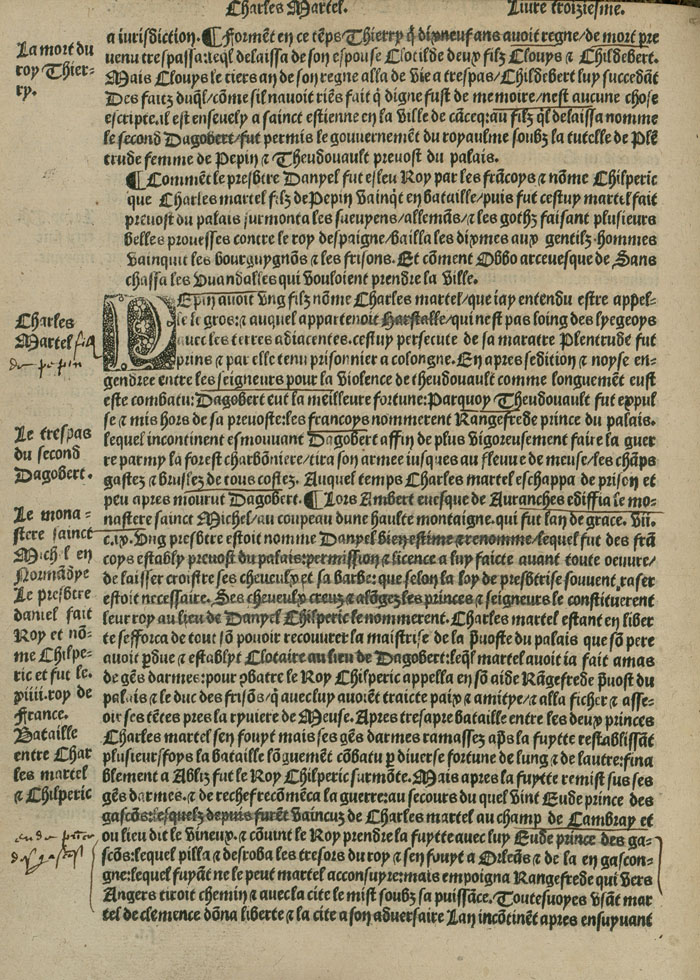 Charles Martel. Liure troiziesme.
La mort du
roy Thier-
ry.
a iurisdiction. ¶ Formẽt en ce tẽps Thierry q̃ dixneuf ans auoit regne/de mort pre
uenu trespassa:leq̃l delaissa de son espouse Clotilde deux filz Clouys & Childebert.
Mais Clouys le tiers an de son regne alla de vie a trespas/Childebert luy succedãt
Des faitz duq̃l/cõme sil nauoit riẽs fait q̃ digne fust de memoire/nest aucune chose
escripte.il est enseuely a sainct estienne en la ville de cãceq:au filz q̃l delaissa nomme
le second Dagobert/fut permis le gouuernemẽt du royaulme soubz la tutelle de Plẽ
trude femme de Pepin & Theudouault preuost du palais.
¶ Commẽt le presbtre Danyel fut esleu Roy par les frãcoys & nõme Chilperic
que Charles martel filz de Pepin vainq̃t en bataille/puis fut cestuy martel fait
preuost du palais surmonta les sueuyens/allemãs/& les gothz faisant plusieurs
belles prouesses contre le roy despaigne/bailla les dixmes aux gentilz-hommes
vainquit les bourguygnõs & les frisons. Et cõment Obbo arceuesque de Sans
chassa les Vuandalles qui vouloient prendre la ville.
Charles
Martel filz
de pepin
PEpin auoit vng filz nõme Charles martel/que iay entendu estre appel-
le le gros:& auquel appartenoit Harstalle/qui nest pas loing des lyegeoys
auec les terres adiacentes.cestuy persecute de sa maratre Plentrude fut
prins & par elle tenu prisonnier a colongne. En apres sedition & noyse en-
gendree entre les seigneurs pour la violence de theudouault comme longuemẽt eust
este combatu: Dagobert eut la meilleure fortune: Parquoy Theudouault fut expul
se & mis hors de sa preuoste:les francoys nommerent Rangefrede prince du palais.
Le trespas
du second
Dagobert.
lequel incontinent esmouuant Dagobert affin de plus vigoreusement faire la guer
re parmy la forest charbõniere/tira son armee iusques au fleuue de meuse/les chãps
gastez & bruslez de tous costez. Auquel temps Charles martel eschappa de prison et
peu apres mourut Dagobert. ¶ Lors Ambert euesque de Auranches ediffia le mo-
Le mona-
stere sainct
Mich l en
Normãdye
nastere sainct Michel/au coupeau dune haulte montaigne.qui fut lan de grace. vii.
c.ix. Vng presbtre estoit nomme Danyel bien estime & renomme/lequel fut des frã
coys estably preuost du palais:permission & licence a luy faicte auant toute oeuure/
de laisser croistre ses cheueulx et sa barbe: que selon la loy de presbtrise souuent raser
Le presbtre
daniel fait
Roy et nõ-
me Chilpe-
ric et fut le.
xiiii.roy de
France.
estoit necessaire. Ses cheueulx creuz & alõgez les princes & seigneurs le constituerent
leur roy au lieu de Danyel Chilperic le nommerent. Charles martel estant en liber
te sefforca de tout sõ pouoir recouurer la maistrise de la p̃uoste du palais que sõ pere
auoit p̃due & establyt Clotaire au lieu de Dagobert:leq̃l martel auoit ia fait amas
de gẽs darmes:pour ꝯbatre le Roy Chilperic appella en sõ aide Rãgefrede p̃uost du
palais & le duc des frisõs/ q̃ auecluy auoiẽt traicte paix & amitye/& alla ficher & asse-
oir ses tẽtes pres la ryuiere de Meuse. Apres tresapre bataille entre les deux princes
Bataille
entre Char
les martel
& Chilperic
Charles martel sen fouyt mais ses gẽs darmes ramassez ap̃s la fuytte restablissãt
plusieursfoys la bataille lõguemẽt cõbatu p̱ diuerse fortune de lung & de lautre:fina
blement a Abliz fut le Roy Chilperic surmõte. Mais apres la fuytte remist sus ses
gẽs darmes.& de rechef recõmẽca la guerre:au secours du quel vint Eude prince des
gascõs:lesquelz depuis furẽt vaincuz de Charles martel au champ de Cambray et
ou lieu dit le Vineux & cõuint le Roy prendre la fuytte auec luy Eude prince des ga-
eude prince
des gascõs
scõs:lequel pilla & desroba les tresors du roy & sen fouyt a Orleãs & de la en gascon-
gne:lequel fuyãt ne le peut martel acconsuyre:mais empoigna Rangefrede qui vers
Angers tiroit chemin & auec la cite le mist soubz sa puissãce. Toutesuoyes vsãt mar
tel de clemence dõna liberte & la cite a son aduersaire Lan incõtinẽt apres ensuyuant